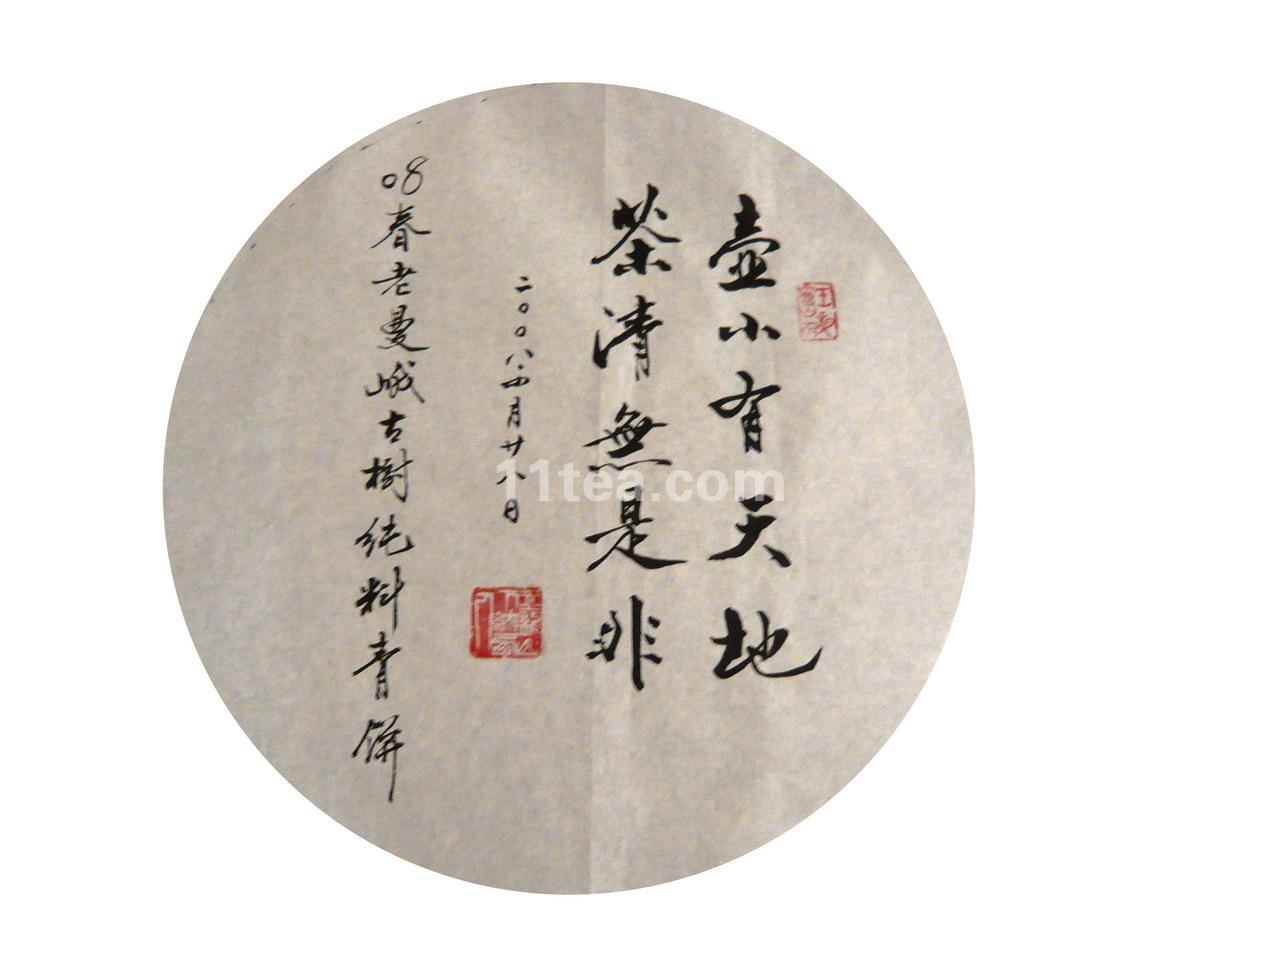 壺小有天地
茶清無是非
二〇〇八.四月廿八日
08春老曼峨古樹純料青餅
11tea.com